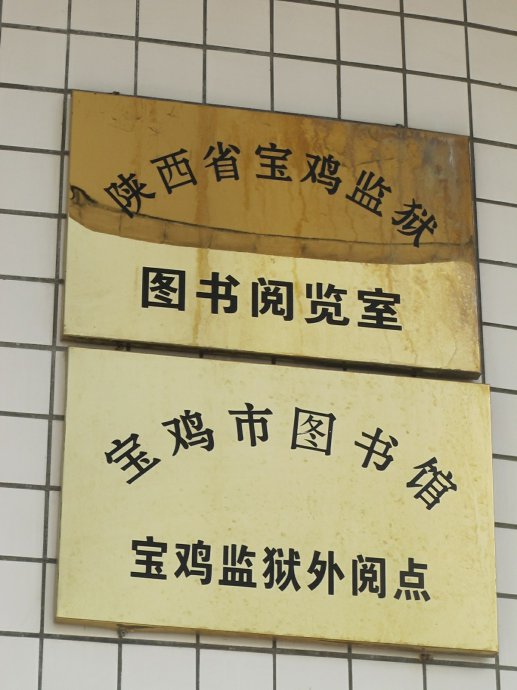 陕西省宝鸡监狱
图书阅览室
宝鸡市图书馆
宝鸡监狱外阅点